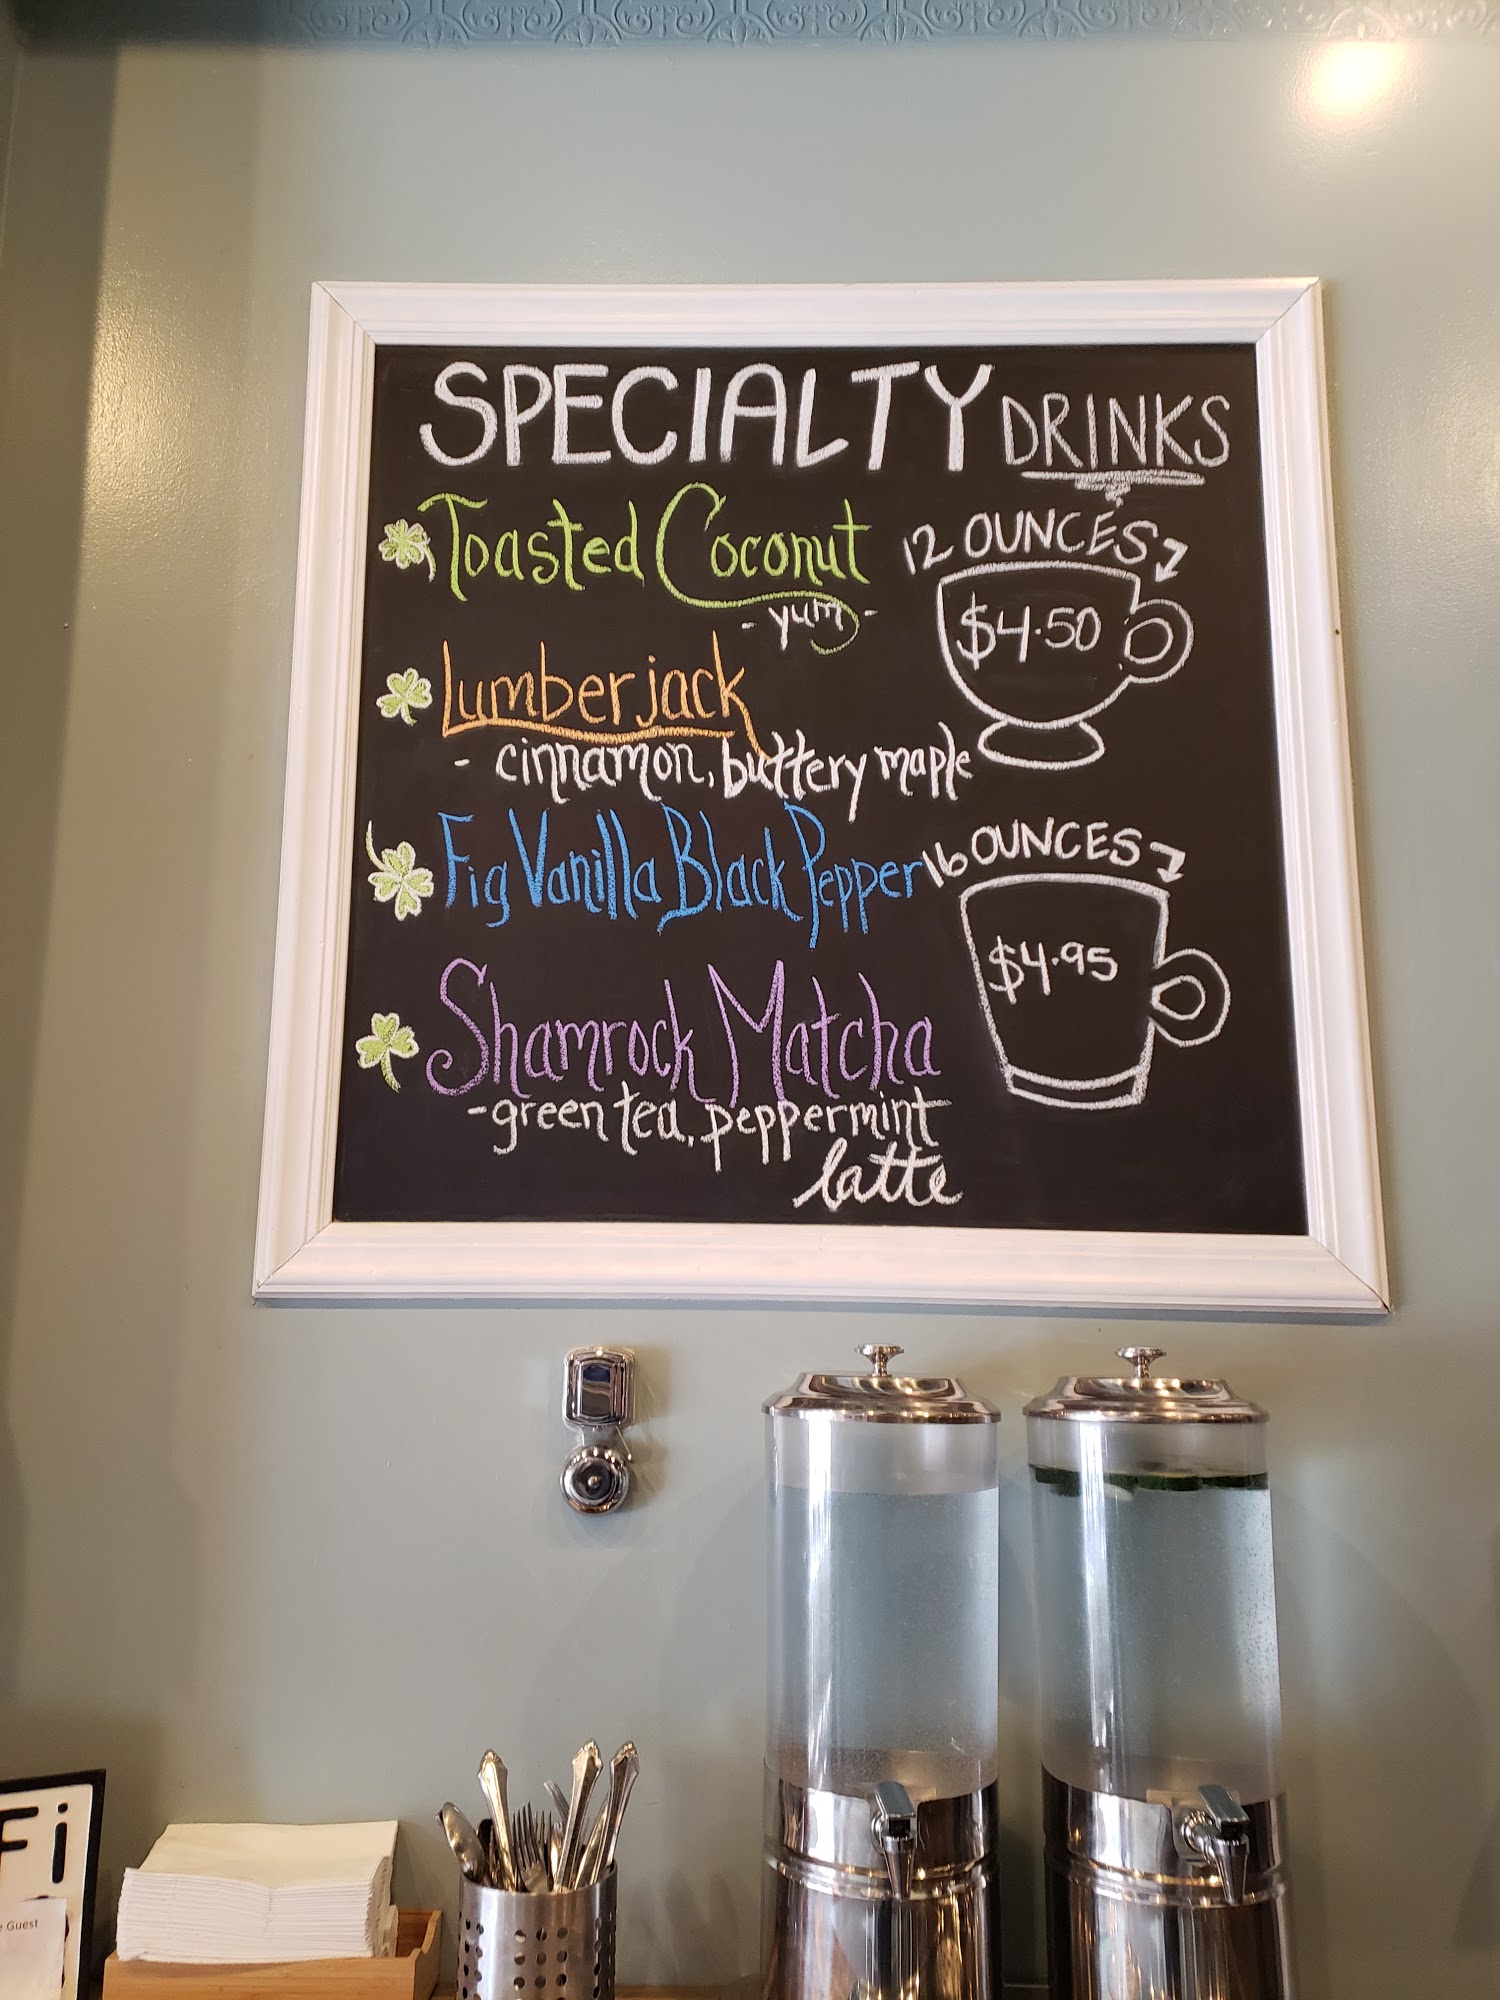 SPECIALTY DRINKS
Toasted Coconut
- yum -
Lumberjack
- cinnamon, buttery maple
Fig Vanilla Black Pepper
Shamrock Matcha
- green tea, peppermint
latte
12 OUNCES
$4.50
16 OUNCES
$4.95
Fi
Guest